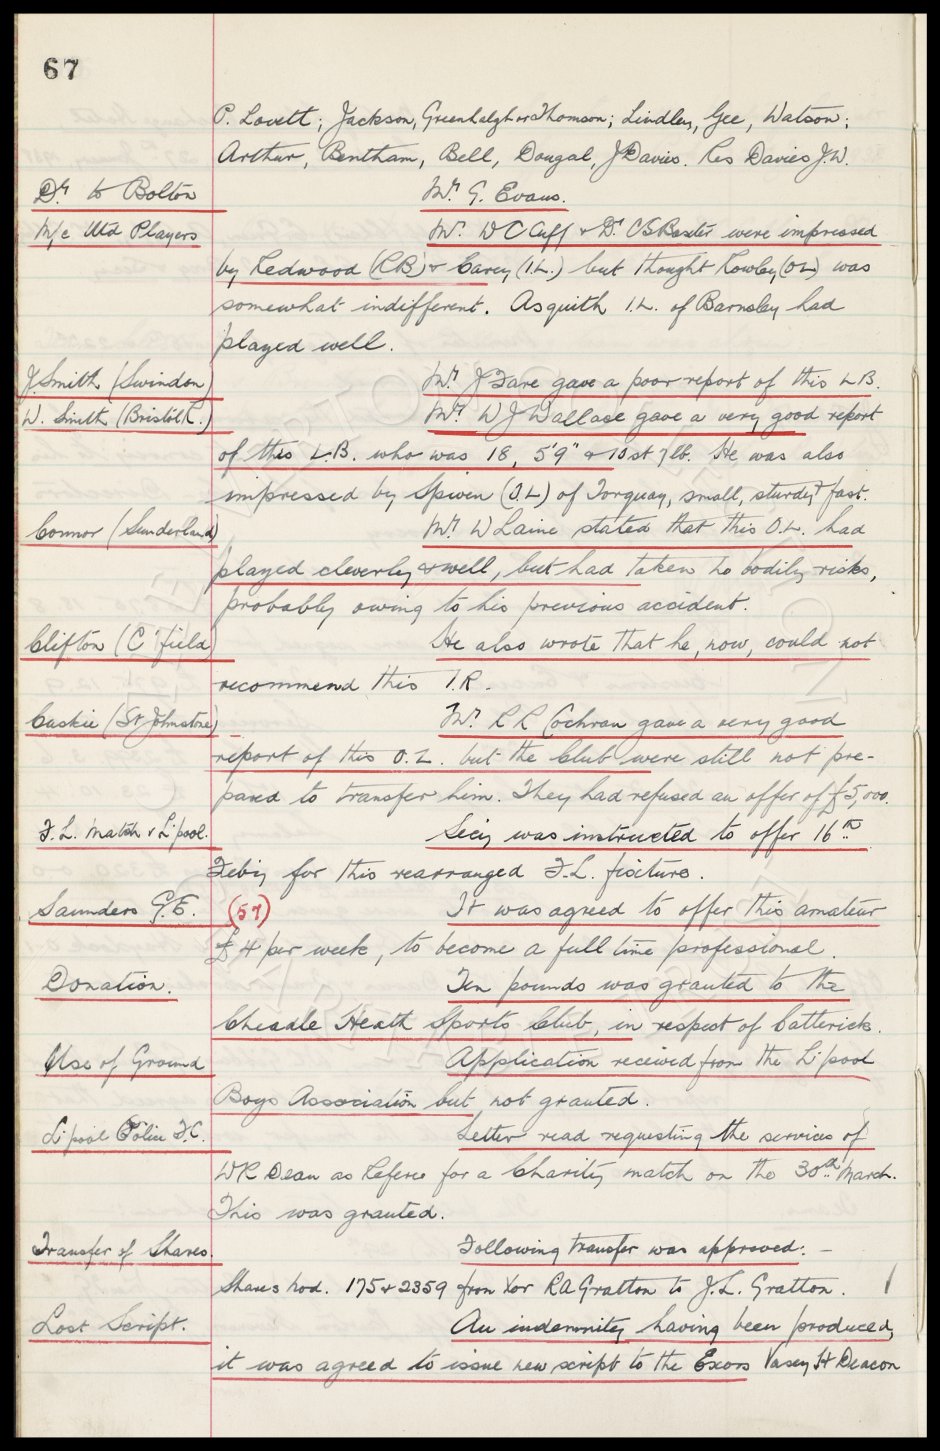 67
P. Lovett; Jackson, Greenhalgh or Thomson; Lindley, Gee, Watson;
Arthur, Bentham, Bell, Dougal, J Davies. Res Davies J.W.
Dr. to Bolton Mr. G. Evans.
M/c Utd Players Mr. W C Cuff & Dr. C S Baxter were impressed
by Redwood (R.B) & Carey (I.L.) but thought Rowley (OL) was
somewhat indifferent. Asquith I.L. of Barnsley had
played well.
J. Smith (Swindon) Mr. J Fare gave a poor report of this L.B.
W. Smith (Bristol R.) Mr. W J Wallace gave a very good report
of this L.B. who was 18, 5'9" & 10st 7lb. He was also
impressed by Spiven (O.L) of Torquay, small, sturdy & fast.
Connor (Sunderland) Mr. W Laine stated that this O.L. had
played cleverly & well, but had taken no bodily risks,
probably owing to his previous accident.
Clifton (C'field) He also wrote that he, now, could not
recommend this I.R.
Caskie (St Johnstone) Mr. R R Cochran gave a very good
report of this O.L. but the Club were still not pre-
pared to transfer him. They had refused an offer of £5,000.
F.L. Match v L'pool. Secy was instructed to offer 16th
Feby for this rearranged F.L. fixture.
Saunders G.E. (57) It was agreed to offer this amateur
£4 per week, to become a full time professional.
Donation. Ten pounds was granted to the
Cheadle Heath Sports Club, in respect of Catterick.
Use of Ground Application received from the L'pool
Boys Association but not granted.
L'pool Police F.C. Letter read requesting the services of
W R Dean as Referee for a Charity match on the 30th March.
This was granted.
Transfer of Shares. Following transfer was approved: –
Shares nod. 175 & 2359 from Xor R A Gratton to J.L. Gratton.
Lost Script. An indemnity having been produced,
it was agreed to issue new script to the Exors Vasey H Deacon